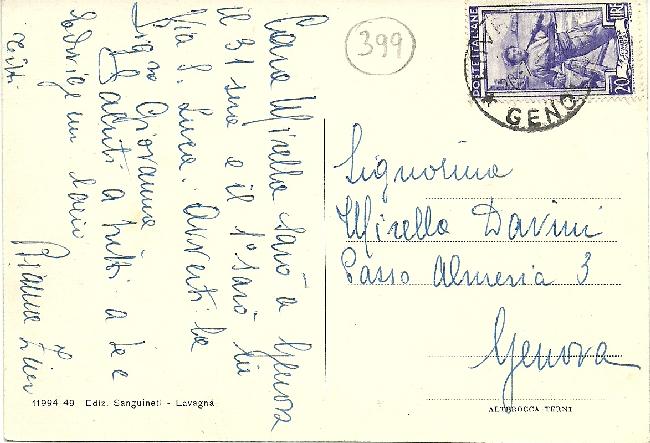 399
POSTE ITALIANE
LIRE
20
GENO
Cara Mirella sarò a Genova
il 31 sera e il 1° sarò in
Via S. Luca. Avverti la
Sig.ra Giovanna
Saluti a tutti a te e
un bacio
Bianca
Signorina
Mirella Davini
Passo Almeria 3
Genova
11994-49 Ediz. Sanguineti - Lavagna
ALTEROCCA TERNI